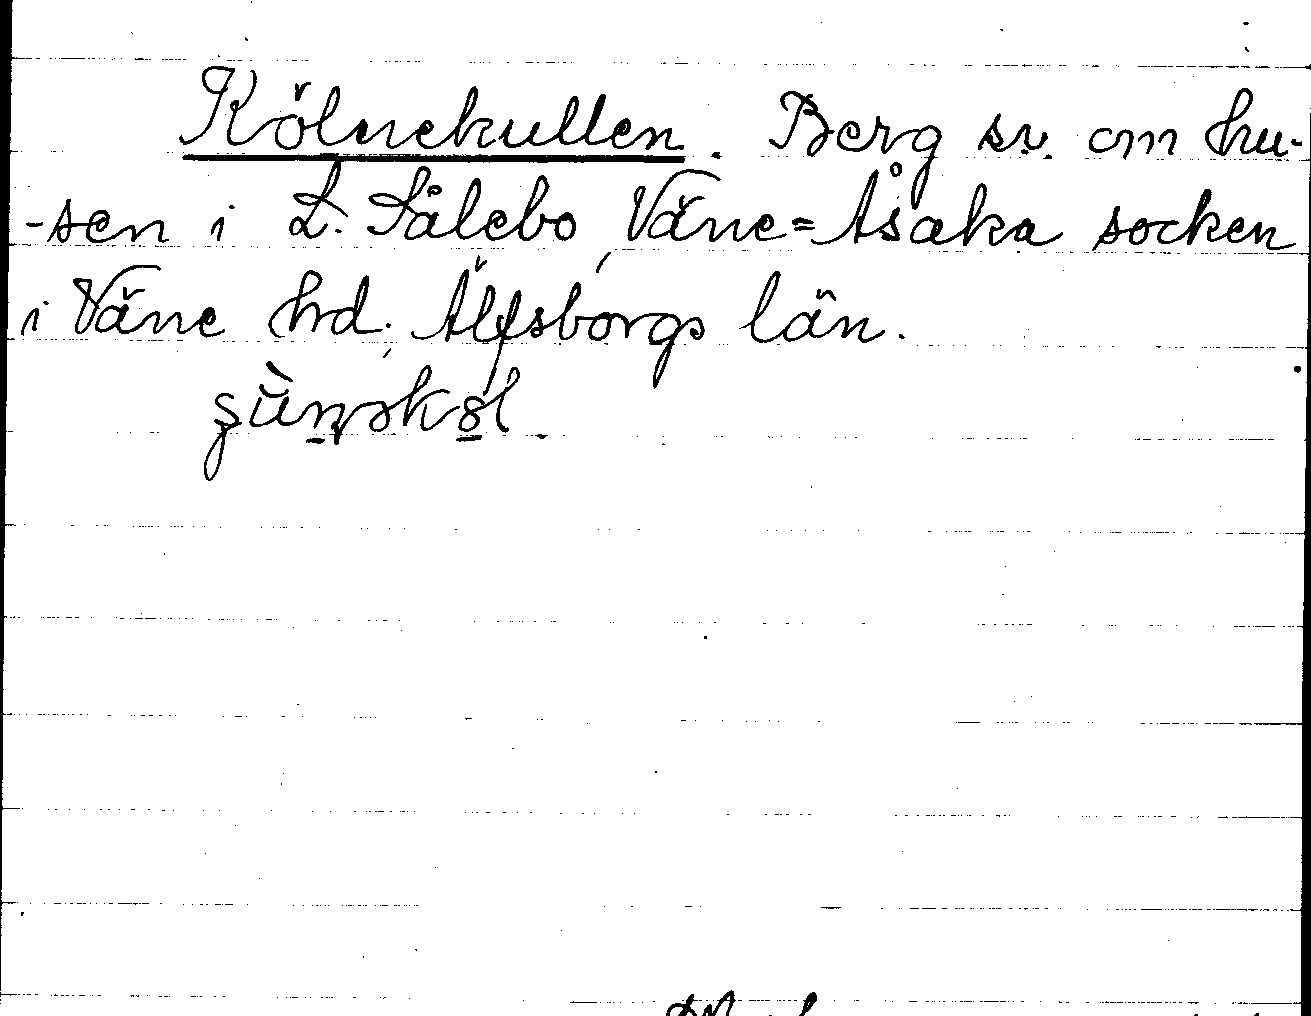 Kölnekullen. Berg sv. om hu-
-sen i L. Sålebo, Väne=Åsaka socken
i Väne hrd, Älfsborgs län.